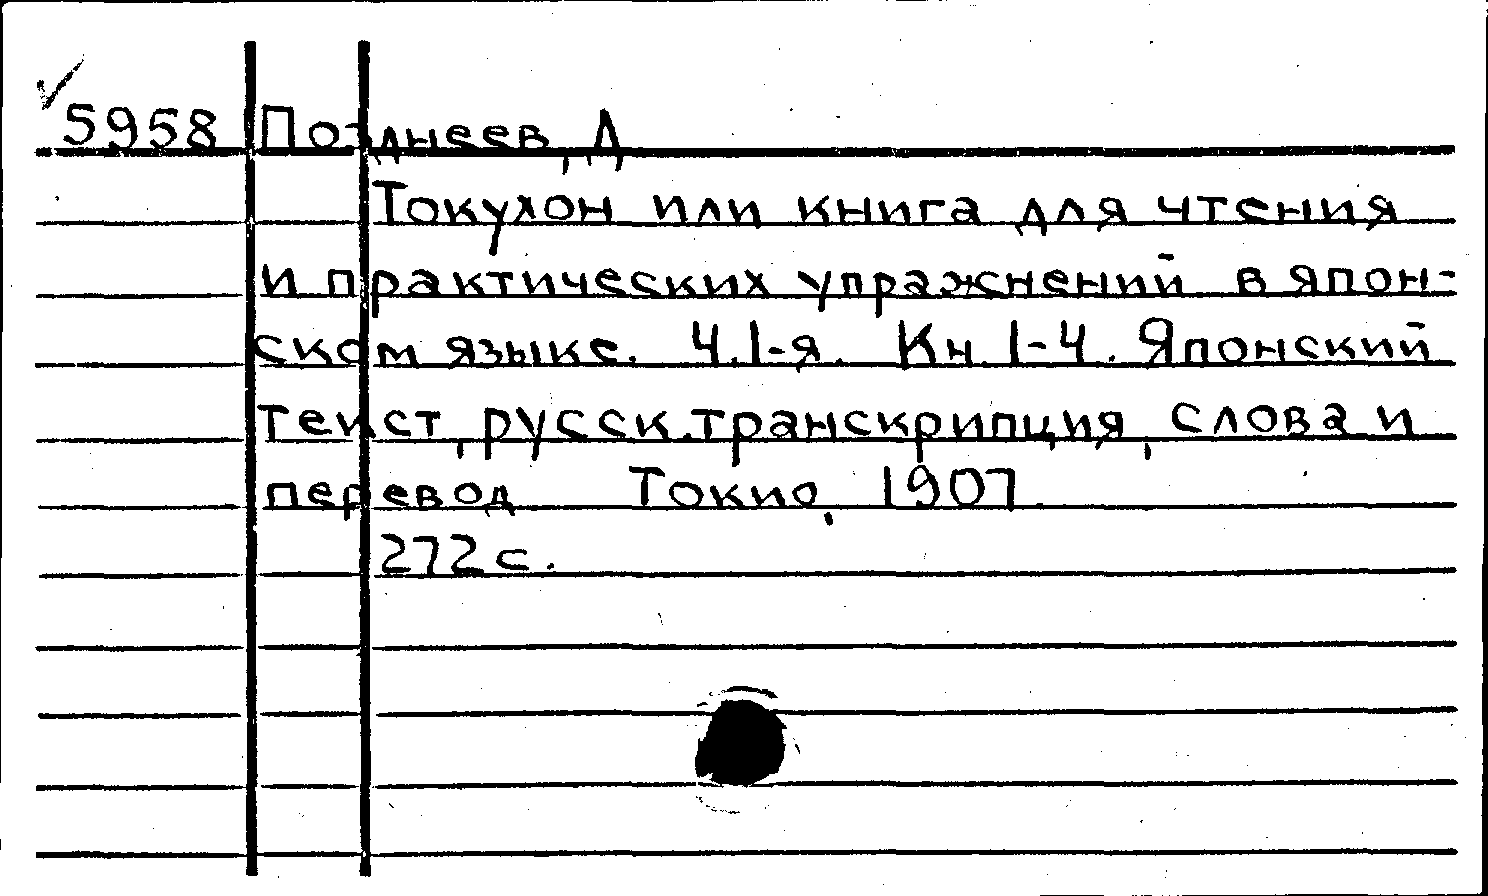 5958 Позднеев, Д
Токухон или книга для чтения
и практических упражнений в япон-
ском языке. Ч.1-я. Кн. 1-4. Японский
текст, русск.транскрипция, слова и
перевод Токио, 1907
272 с.